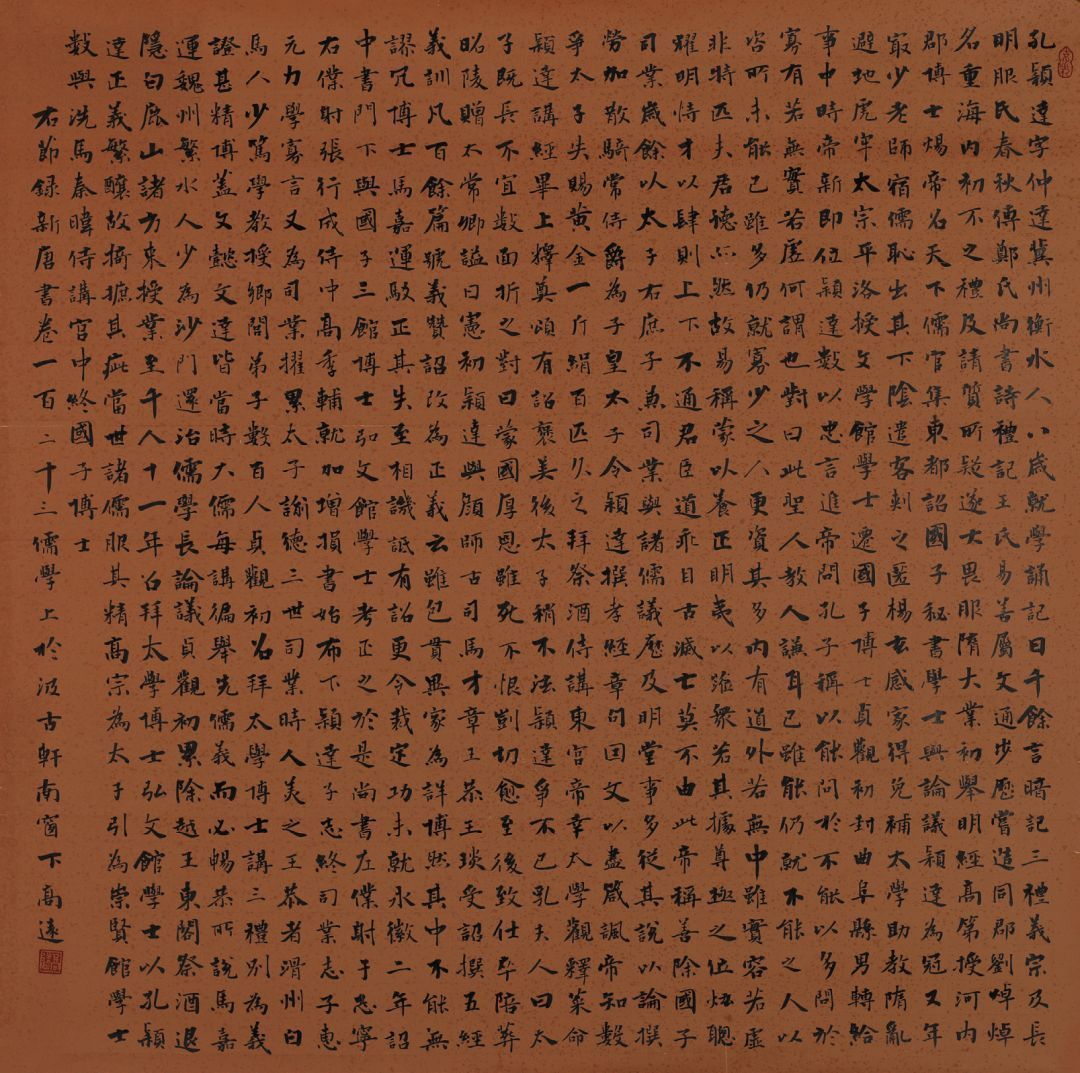 孔穎達字仲達冀州衡水人八歲就學誦記日千餘言暗記三禮義宗及長
明服氏春秋傳鄭氏尚書詩禮記王氏易善屬文通步曆嘗造同郡劉焯焯
名重海內初不之禮及請質所疑遂士畏服隋大業初舉明經高第授河內
郡博士煬帝召天下儒官集東都詔國子秘書學士與論議穎達為冠又年
最少老師宿儒恥出其下陰遣客刺之匿楊玄感家得免補太學助教隋亂
避地虎牢太宗平洛授文學館學士遷國子博士貞觀初封曲阜縣男轉給
事中時帝新即位穎達數以忠言進帝問孔子稱以能問於不能以多問於
寡有若無實若虛何謂也對曰此聖人教人謙耳己雖能仍就不能之人以
咨所未能己雖多仍就寡少之人更資其多內有道外若無中雖實容若虛
非特匹夫君德亦然故易稱蒙以養正明夷以蒞眾若其據尊極之位炫聰
耀明恃才以肆則上下不通君臣道乖自古滅亡莫不由此帝稱善除國子
司業歲餘以太子右庶子兼司業與諸儒議曆及明堂事多從其說以論撰
勞加散騎常侍爵為子皇太子令穎達撰孝經章句因文以盡箴諷帝知數
爭太子失賜黃金一斤絹百匹久之拜祭酒侍講東宮帝幸太學觀釋菜命
穎達講經畢上釋奠頌有詔褒美後太子稍不法穎達爭不已乳夫人曰太
子既長不宜數面折之對曰蒙國厚恩雖死不恨剴切愈至後致仕卒陪葬
昭陵贈太常卿謚曰憲初穎達與顏師古司馬才章王恭王琰受詔撰五經
義訓凡百餘篇號義贊詔改為正義云雖包貫異家為詳博然其中不能無
謬冗博士馬嘉運駁正其失至相譏詆有詔更令裁定功未就永徽二年詔
中書門下與國子三館博士弘文館學士考正之於是尚書左僕射于志寧
右僕射張行成侍中高季輔就加增損書始布下穎達子志終司業志子惠
元力學寡言又為司業擢累太子諭德三世司業時人美之王恭者滑州白
馬人少篤學教授鄉閭弟子數百人貞觀初召拜太學博士講三禮別為義
證甚精博蓋文懿文達皆當時大儒每講徧舉先儒義而必暢恭所說馬嘉
運魏州繁水人少為沙門還治儒學長論議貞觀初累除越王東閣祭酒退
隱白鹿山諸方來授業至千人十一年召拜太學博士弘文館學士以孔穎
達正義繁釀故掎摭其疵當世諸儒服其精高宗為太子引為崇賢館學士
數與洗馬秦暐侍講宮中終國子博士
右節錄新唐書卷一百二十三儒學上於汲古軒南窗下高遠